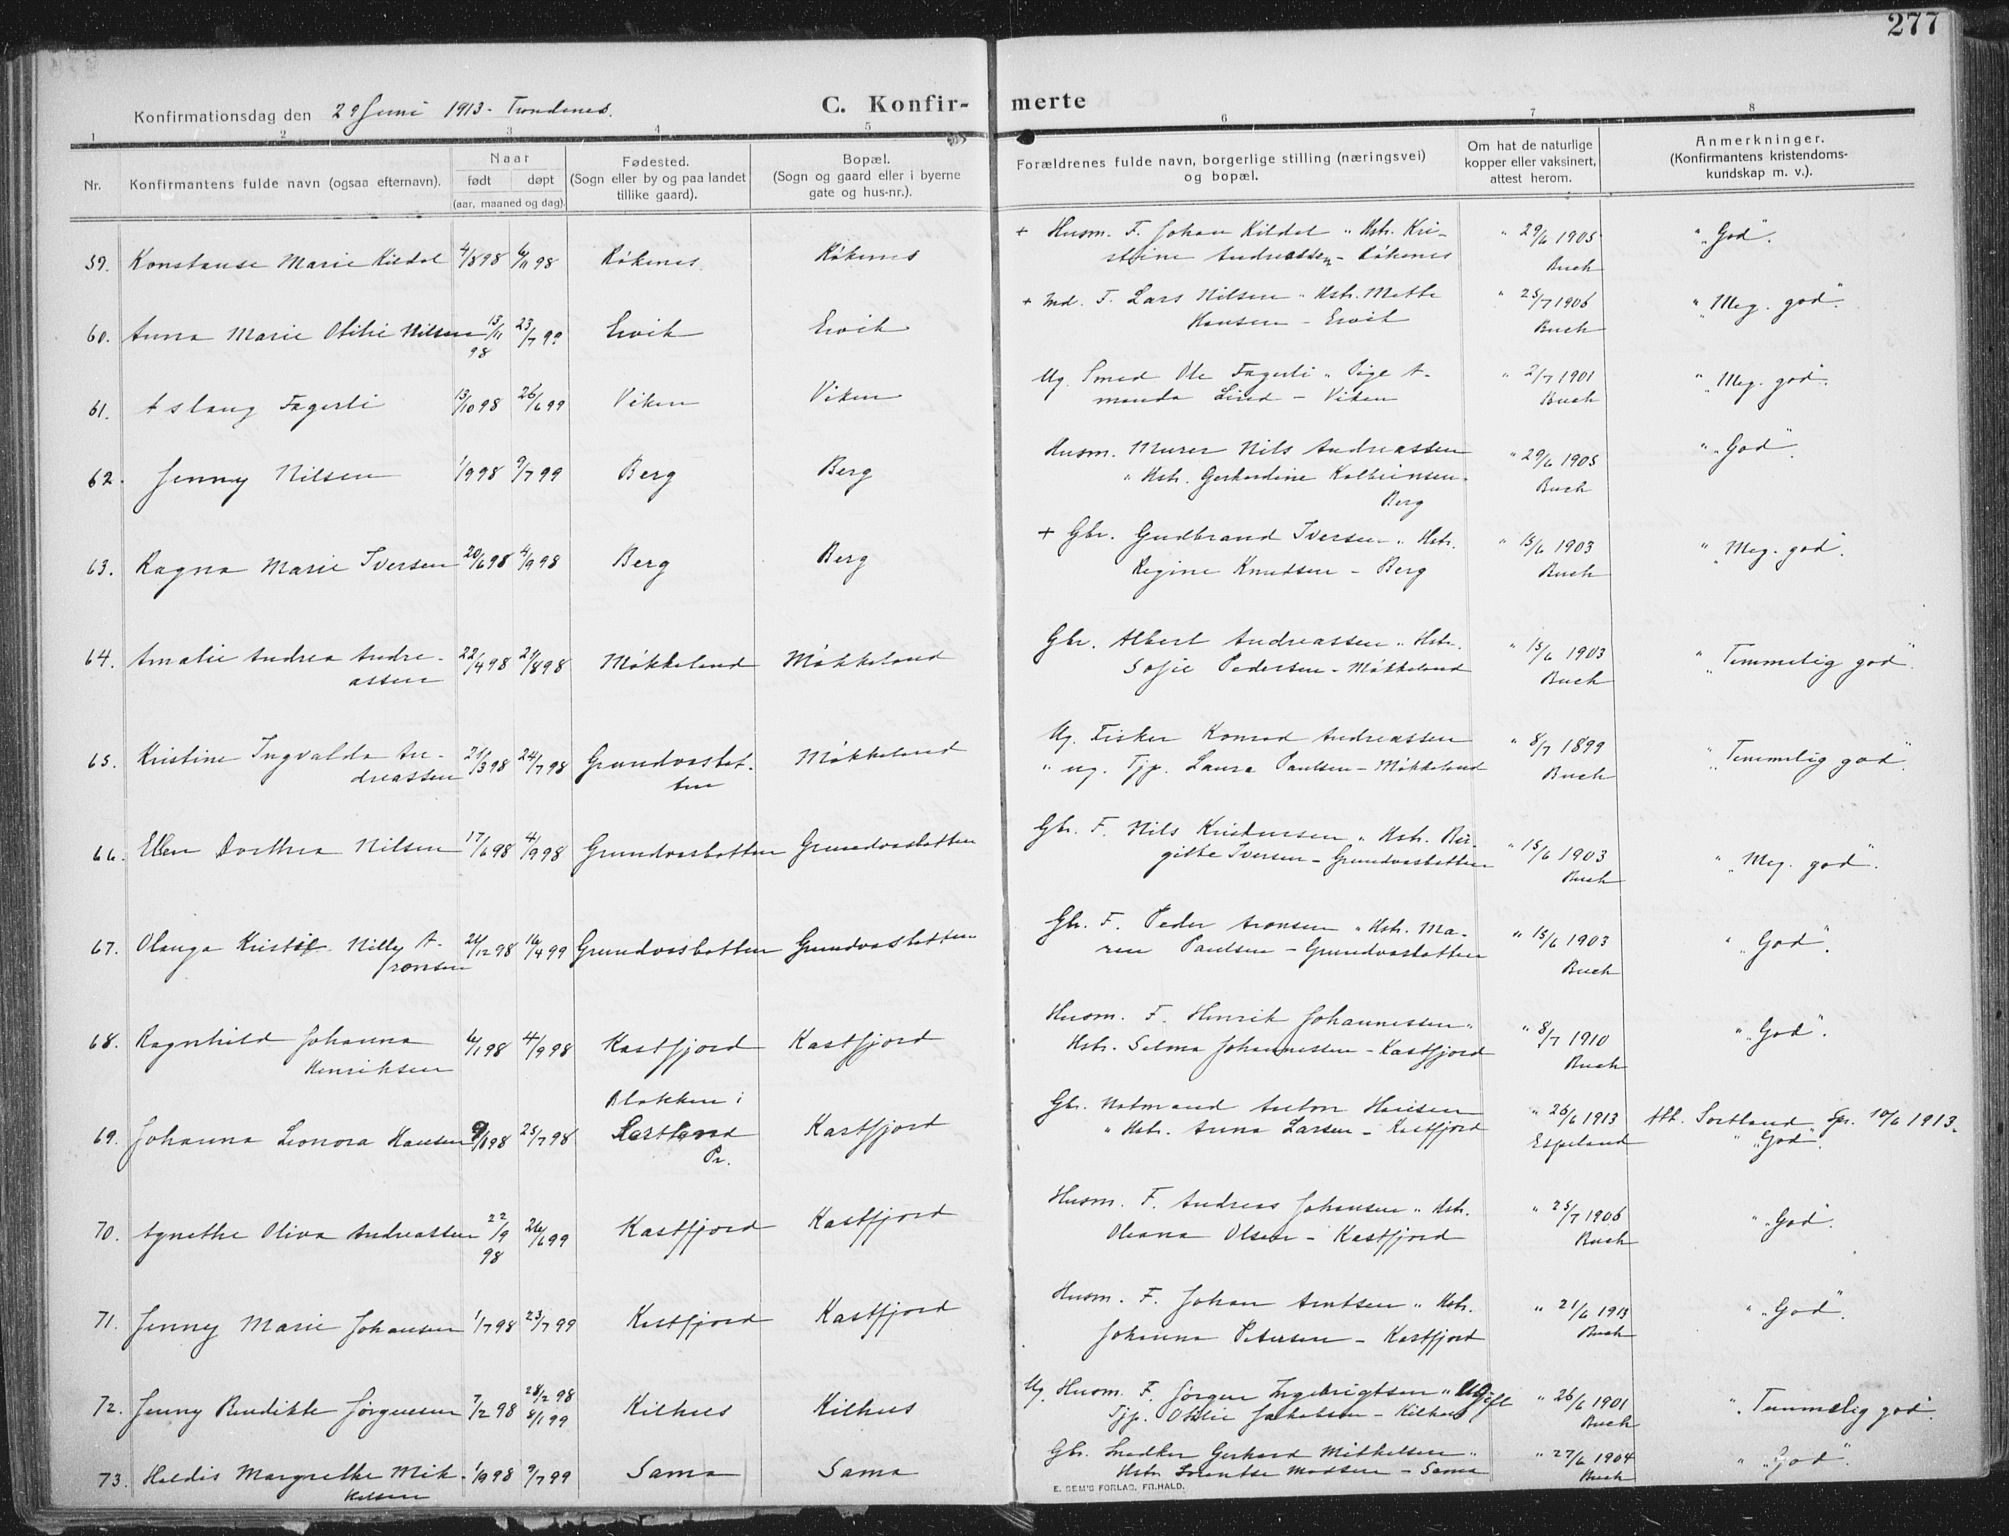 277
Konfirmationsdag den 29 Juni 1913 - Trondenes.
C. Konfir- merte
1 2 3 4 5 6 7 8
Nr.
Konfirmantens fulde navn (ogsaa efternavn).
Naar
født døpt
(aar, maaned og dag).
Fødested.
(Sogn eller by og paa landet
tillike gaard).
Bopæl.
(Sogn og gaard eller i byerne
gate og hus-nr.).
Forældrenes fulde navn, borgerlige stilling (næringsvei)
og bopæl.
Om hat de naturlige
kopper eller vaksinert,
attest herom.
Anmerkninger.
(Konfirmantens kristendoms-
kundskap m. v.).
59. Konstanse Marie Kildal 4/8 98 6/11 98 Røkenes Røkenes
+ Husm. F. Johan Kildal " Hstr. Kri-
stine Andreassen - Røkenes
" 29/6 1905
Buch
" "God".
60. Anna Marie Otilie Nilsen 13/11 98 23/7 99 Ervik Ervik
+ Ind. F. Lars Nilsen " Hstr. Mette
Hansen - Ervik
" 25/7 1906
Buch
" "Meg. god".
61. Aslaug Fagerli 13/10 98 26/6 99 Viken Viken
Ug. Smed Ole Fagerli " Pige A-
manda Lind - Viken
" 2/7 1901
Buch
" "Meg. god".
62. Jenny Nilsen 1/9 98 9/7 99 Berg Berg
Husm. Murer Nils Andreassen
" Hstr. Gerhardine Kolbeinsen -
Berg
" 29/6 1905
Buch
" "God".
63. Ragna Marie Iversen 20/6 98 4/9 98 Berg Berg
+ Gbr. Gudbrand Iversen " Hstr.
Regine Knudsen - Berg
" 15/6 1903
Buch
" "Meg. god".
64. Amalie Andrea Andre-
assen
22/4 98 29/8 98 Møkkeland Møkkeland
Gbr. Albert Andreassen " Hstr.
Sofie Pedersen - Møkkeland
" 15/6 1903
Buch
" "Temmelig god".
65. Kristine Ingvalda An-
dreassen
21/3 98 24/7 98 Grundvasbot-
ten
Møkkeland
Ug. Fisker Konrad Andreassen
" ug. Tjp. Laura Paulsen - Møkkeland
" 8/7 1899
Buch
" "Temmelig god".
66. Ellen Dorthea Nilsen 17/6 98 4/9 98 Grundvasbotten Grundvasbotten
Gbr. F. Nils Kristensen " Hstr. Bir-
gitte Iversen - Grundvasbotten
" 15/6 1903
Buch
" "Meg. god".
67. Olauga Nilly A-
ronsen
21/12 98 16/4 99 Grundvasbotten Grundvasbotten
Gbr. F. Peder Aronsen " Hstr. Ma-
ren Paulsen - Grundvasbotten
" 15/6 1903
Buch
" "God".
68. Ragnhild Johanna
Henriksen
6/1 98 4/9 98 Kastfjord Kastfjord
Husm. F. Henrik Johannessen "
Hstr. Selma Johannessen - Kastfjord
" 8/7 1910
Buch
" "God".
69. Johanna Leonora Hansen 9/1 98 25/7 98 Blokken i
Sortland
Pr.
Kastfjord
Gbr. Notmand Anton Hansen
" Hstr. Anna Larsen - Kastfjord
" 26/6 1913
Espeland
Att. Sortland Spr. 10/6 1913.
" "God".
70. Agnethe Oliva Andreassen 22/9 98 26/6 99 Kastfjord Kastfjord
Husm. F. Andreas Johansen " Hstr.
Oleana Olsen - Kastfjord
" 25/7 1906
Buch
" "God".
71. Jenny Marie Johansen 1/7 98 23/7 99 Kastfjord Kastfjord
Husm. F. Johan Arntsen " Hstr.
Johanna Petersen - Kastfjord
" 21/6 1913
Buch
" "God".
72. Jenny Bendikte Jørgensen 7/2 98 28/2 98
8/1 99
Kilhus Kilhus
Ug. Husm. F. Jørgen Ingebrigtsen " Ugift
Tjp. Otilie Jakobsen - Kilhus
" 26/6 1901
Buch
" "Temmelig god".
73. Haldis Margrethe Mik-
kelsen
1/9 98 9/7 99 Sama Sama
Gbr. Snedker Gerhard Mikkelsen "
Hstr. Lorentse Madsen - Sama
" 27/6 1904
Buch
" "God".
E. SEM'S FORLAG, FR.HALD.